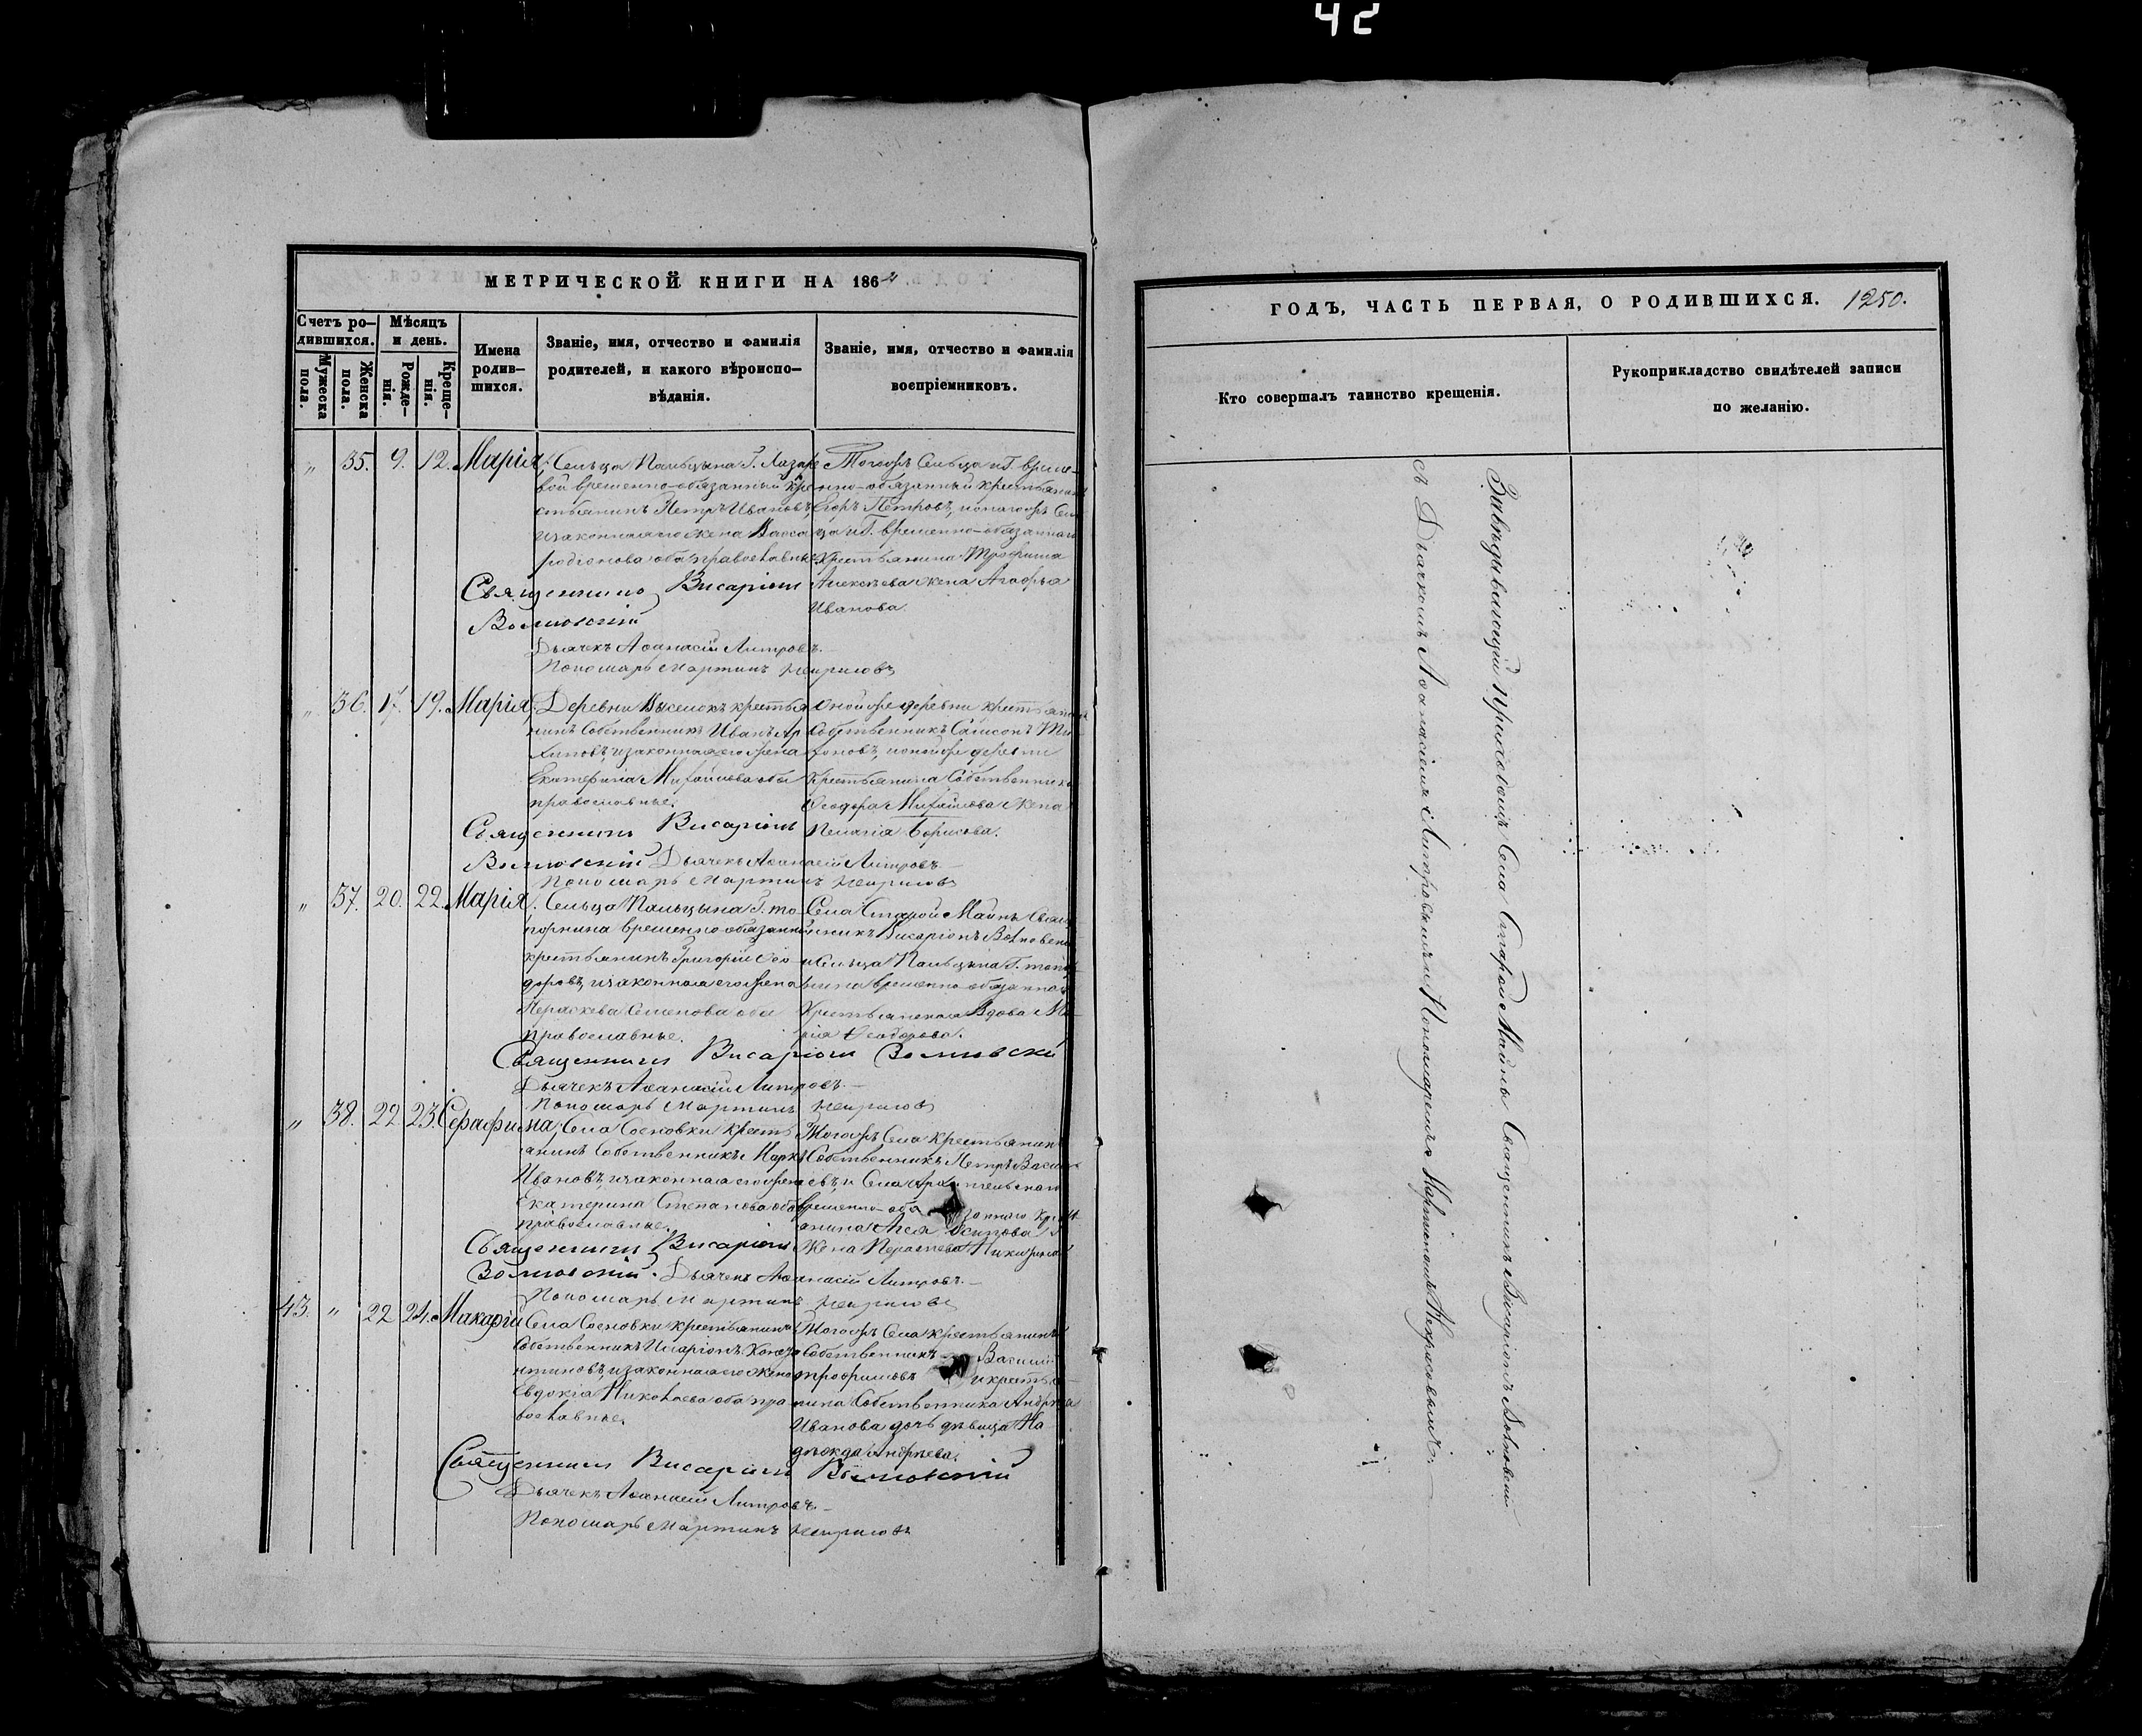 42
МЕТРИЧЕСКОЙ КНИГИ НА 186
Счетъ ро-
дившихся.
Мужеска
пола.
Женска
пола.
Мѣсяцъ
и день.
Рожде-
нія.
Креще-
нія.
Имена
родив-
шихся.
Званіе, имя, отчество и фамилія
родителей, и какого вѣроиспо-
вѣданія.
Званіе, имя, отчество и фамилія
воспріемниковъ.
„ 35. 9. 12. Марія,
Сельца Пальцына Г. Лазаре
вой временно-обязанный кре
стьянинъ Петръ Ивановъ,
и законная его жена Васса
Родіонова оба православные
Тогожъ Сельца и Г. време-
нно-обязанный крестьянинъ
Егоръ Петровъ, и тогожъ Сель
ца и Г. временно-обязаннаго
крестьянина Трофима
Алексѣева жена Агафья
Иванова.
Священникъ Висаріонъ
Волновскій
Дьячекъ Аѳанасій Литровъ.
Пономарь Мартинъ Некрасовъ
„ 36. 17. 19. Марія,
Деревни Выселокъ крестья
нинъ Собственникъ Иванъ Ар
хиповъ, и законная его жена
Екатерина Михайлова оба
православные.
Оной же деревни крестьянинъ
Собственникъ Самсонъ
и той же деревни
крестьянина Собственника
Ѳеодора Михайлова жена
Пелагія Борисова.
Священникъ Висаріонъ
Волновскій Дьячекъ Аѳанасій Литровъ
Пономарь Мартинъ Некрасовъ
„ 37. 20. 22. Марія.
Сельца Пальцына Г. то
порнина временно обязанный
крестьянинъ Григорій Ѳео
доровъ, и законная его жена
Параскева Семенова оба
православные.
Села Старой Майны Свящ
енникъ Висаріонъ Волновскій
и Сельца Пальцына Г. топор
нина временно-обязанная
Крестьянская Вдова Ма
рія Ѳеодорова.
Священникъ Висаріонъ Волновскій
Дьячекъ Аѳанасій Литровъ.
Пономарь Мартинъ Некрасовъ
„ 38. 22 23. Серафима,
Села Сосновки крестъ
янинъ Собственникъ Маркъ
Ивановъ, и законная его жена
Екатерина Степанова оба
православные.
Тогожъ Села крестьянинъ
Собственникъ Петръ Васи
евъ, и Села
временно-обязаннаго крестъ
янина Осипова
жена
Священникъ Висаріонъ
Волновскій. Дьячекъ Аѳанасій Литровъ.
Пономарь Мартинъ Некрасовъ
43. „ 22 24. Макарій
Села Сосновки крестьянинъ
Собственникъ Иларіонъ Конста
нтиновъ, и законная его жена
Евдокія Николаева оба пра
вославные.
Тогожъ Села крестьянинъ
Собственникъ Василій
трофимовъ и крестья
нина Собственника Андрея
Иванова дочь дѣвица На
дежда Андреева.
Священникъ Висаріонъ Волновскій
Дьячекъ Аѳанасій Литровъ.
Пономарь Мартинъ Некрасовъ
ГОДЪ, ЧАСТЬ ПЕРВАЯ, О РОДИВШИХСЯ. 1250.
Кто совершалъ таинство крещенія.
Рукоприкладство свидѣтелей записи
по желанію.
Завѣдывающій приходомъ Села Старой Майны Священникъ Висаріонъ Волновскій
съ Дьячкомъ Аѳанасіемъ Литровымъ и Пономаремъ Мартиномъ Некрасовымъ.